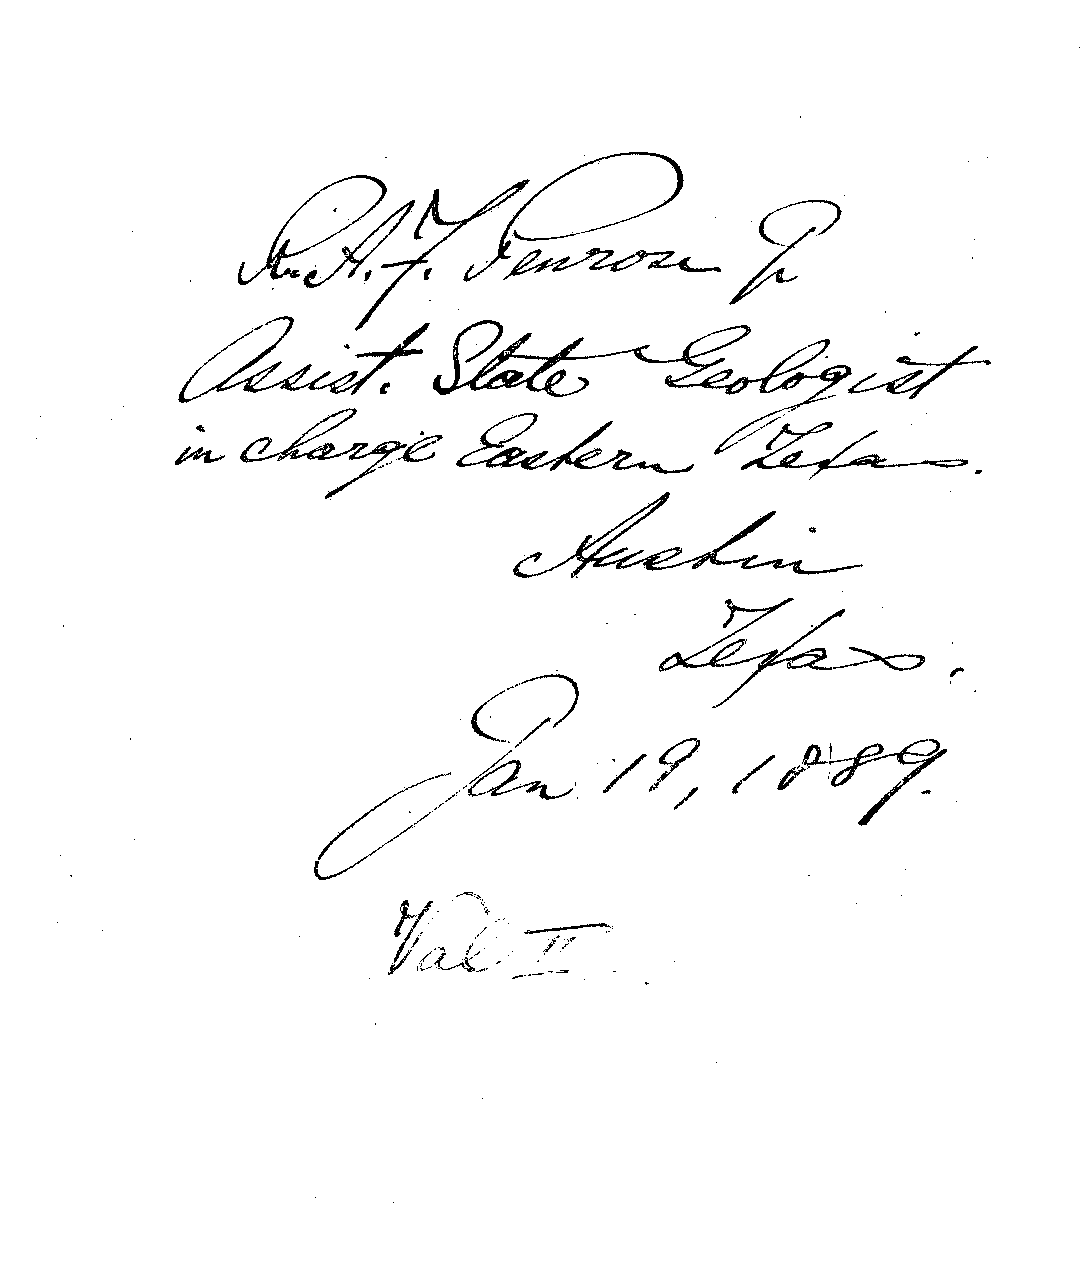 R. A. F. Penrose Jr
Assist. State Geologist
in charge Eastern Texas.
Austin
Texas.
Jan 19, 1889.
Vol II